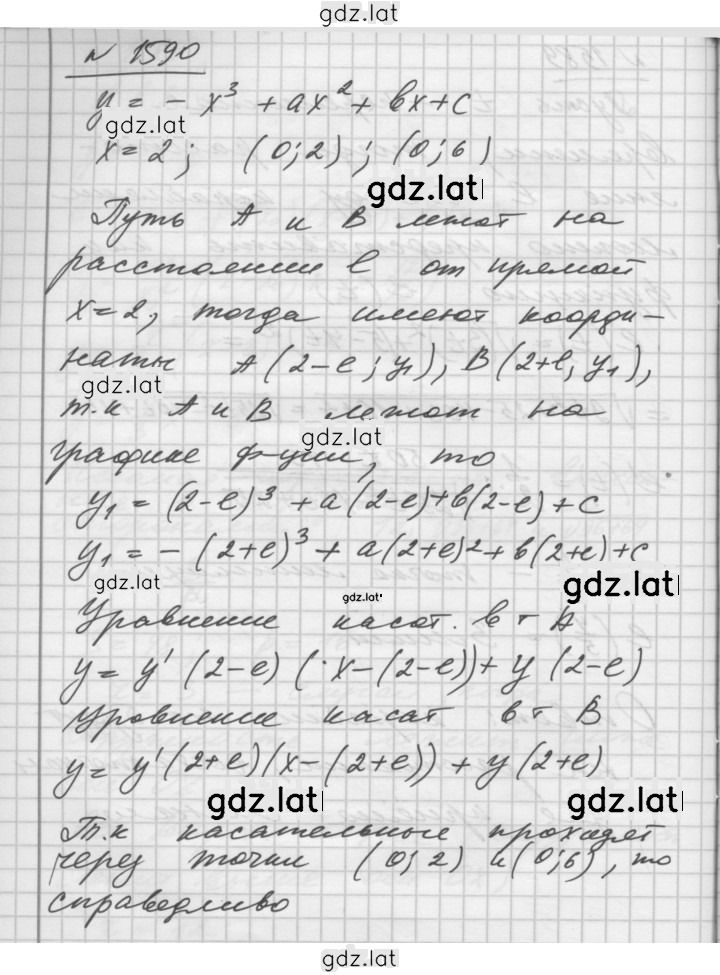 gdz.lat
N 1590
y = - x³ + ax² + bx + c
gdz.lat
x = 2 ; (0;2) ; (0;6)
gdz.lat
Путь A и B лежат на
расстоянии l от прямой
x = 2, тогда имеют коорди-
наты A(2-l; y₁), B(2+l, y₁),
gdz.lat
т.к A и B лежат на
gdz.lat
графике ф-ции, то
y₁ = (2-l)³ + a(2-l) + b(2-l) + c
y₁ = - (2+l)³ + a(2+l)² + b(2+l) + c
gdz.lat
gdz.lat
Уравнение касат. в т A
y = y' (2-l) (x-(2-l)) + y (2-l)
уравнение касат в т B
y = y'(2+l)(x-(2+l)) + y(2+l)
gdz.lat
gdz.lat
Т.к касательные проходят
через точки (0;2) и (0;6), то
справедливо
gdz.lat